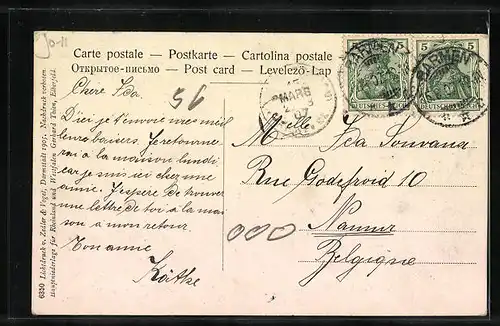 Jo-11
Carte postale — Postkarte — Cartolina postale
Открытое-письмо — Post card — Levelező-Lap
56
Chere Ida.
D'ici je t'envoie mes meil
leurs baisers. Je retourne
rai a la maison lundi
car je suis ici chez une
amie. J'espère de trouver
une lettre de toi à la mai
son a mon retour
Ton amie
Käthe
M Ida Souvana
Rue Godefroid 10
Namur
Belgique
000
BARMEN
BARMEN
5
5
DEUTSCHES REICH
DEUTSCHES REICH
MARS
07
6350 Lichtdruck v. Zedler & Vogel, Darmstadt 1905. Nachdruck verboten
Hauptniederlage für Rheinland und Westfalen Gerhard Thien, Elberfeld.